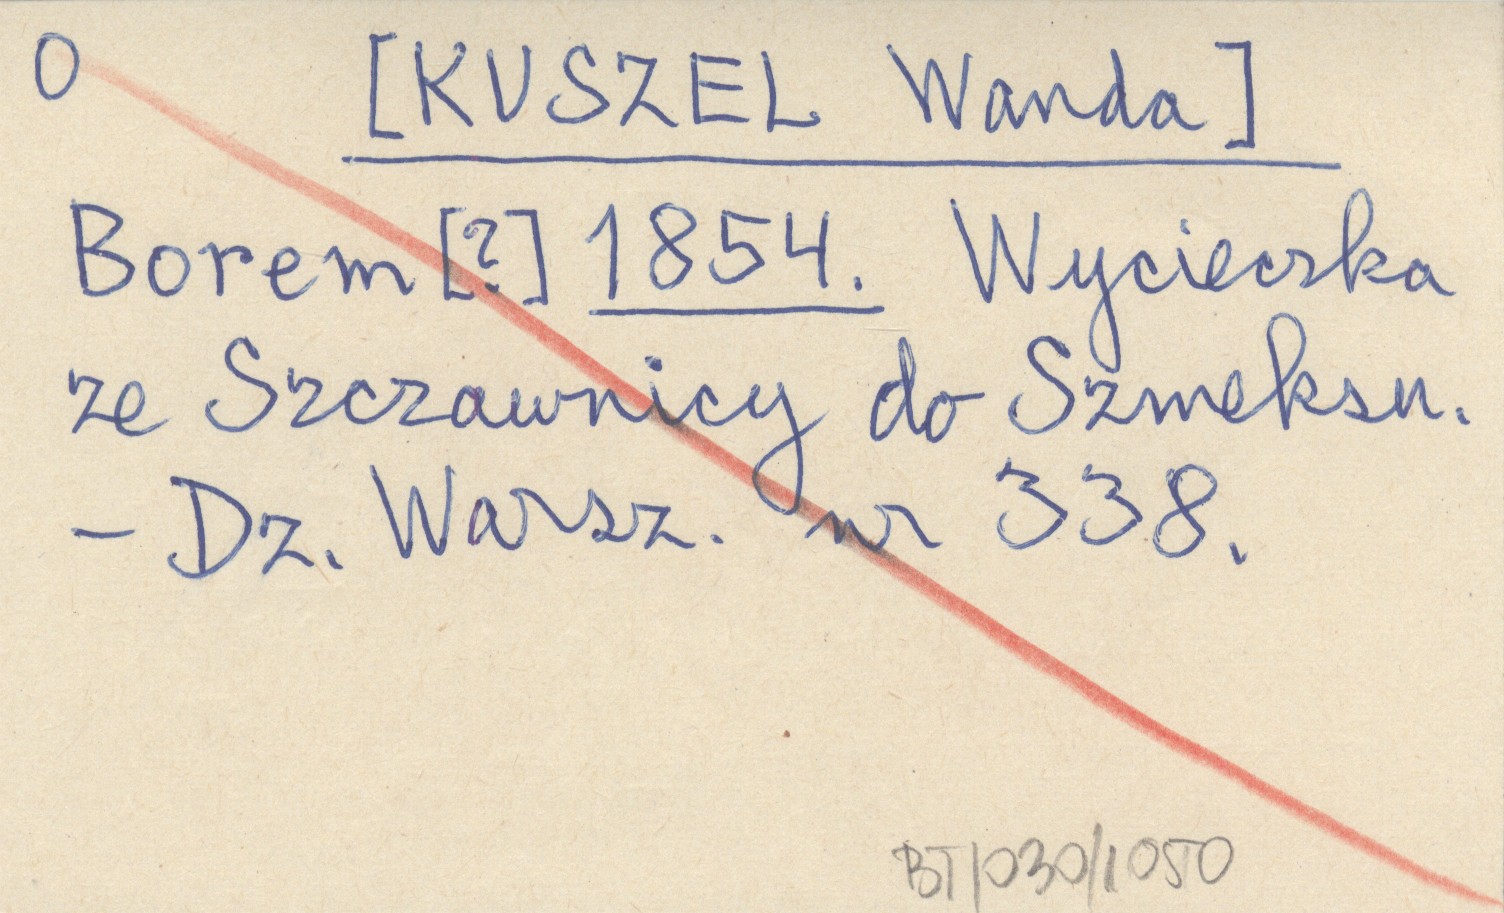 0 [KUSZEL Wanda]
Borem [?] 1854. Wycieczka
ze Szczawnicy do Szmeksu.
- Dz. Warsz. nr 338.
BT/030/1050